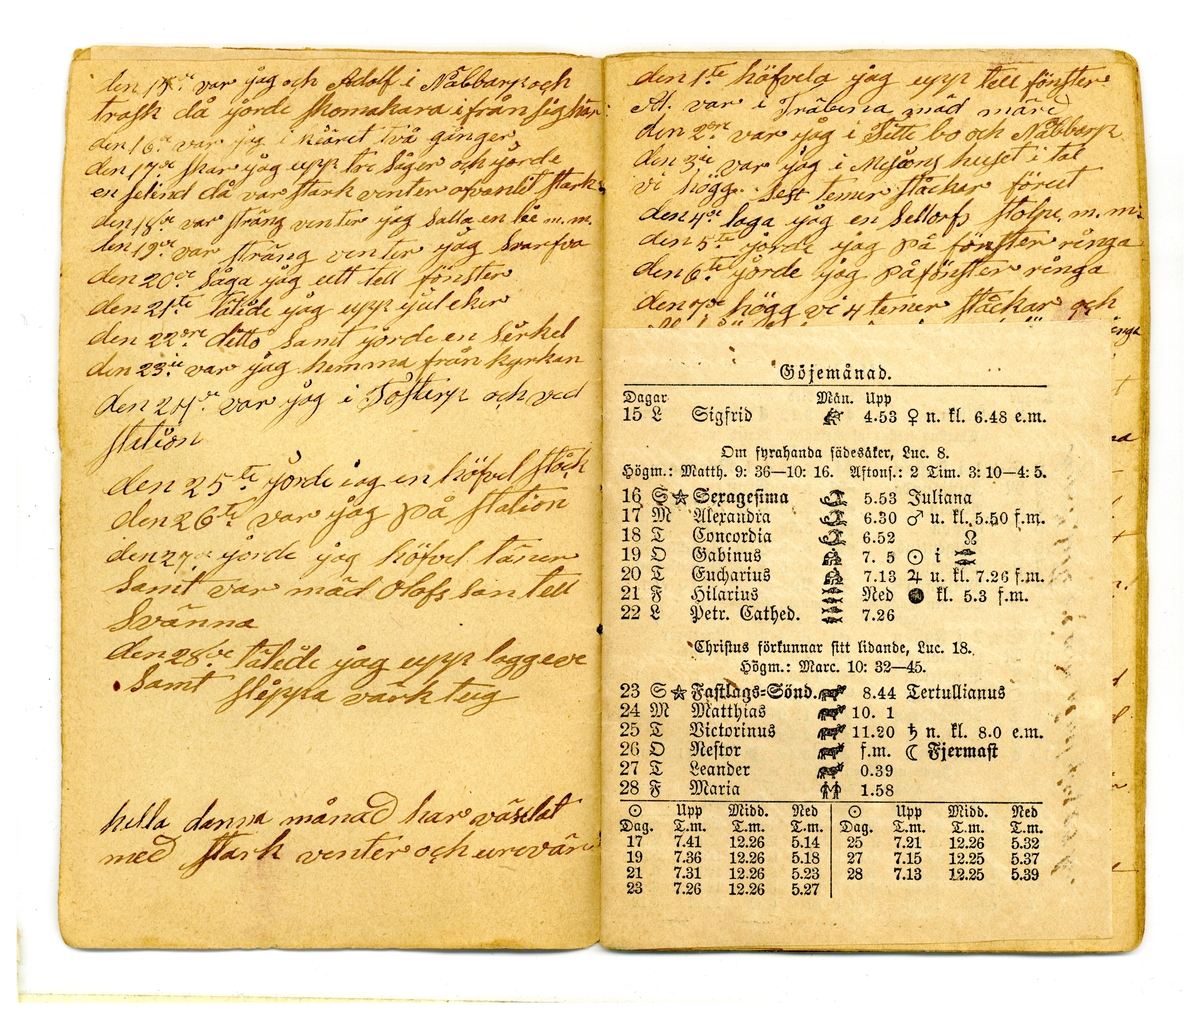 den 15de var jag och Adolf i Näbbarp och
trask då jorde skomakara ifrån sig här
den 16de var jag i Kiäret två gånger
den 17de skar jag upp tre såger och jorde
en selind då var stark venter ovanlit stark
den 18de var sträng venter jag Satta en lie m.m.
den 19de var sträng venter jag Svarfva
den 20de Såga jag ett tell fönster
den 21te täljde jag upp jul eker
den 22dre ditto samt jorde en Serkel
den 23ie var jag hemma från kyrkan
den 24de var jag i Tosterp och ved
station
den 25te jorde jag en höfvel stock
den 26te var jag på station
den 27de jorde jag höfvel täner
samt var mäd Olofs son tell
Svänna
den 28de täljde jag upp laggeve
samt slippa värk teig
hella denna månad har väselat
med stark venter och urevär
den 1te höfvela jag upp tell fönster
Al. var i Träbena mäd märe
den 2dre var jag i Sitte bo och Näbbarp
den 3ie var jag i Misions huset i tal
vi högg Sest temer ståckar förest
den 4de laga jag en Seltorfs stolpe m.m.
den 5te jorde jag på fönster ronga
den 6te jorde jag på fönster ronga
den 7de högg vi 4 temer ståckar och
Göjemånad.
Dagar Mån. Upp
15 L Sigfrid 4.53 ♀ n. kl. 6.48 e.m.
Om fyrahanda sädesåker, Luc. 8.
Högm.: Matth. 9: 36—10: 16. Aftons.: 2 Tim. 3: 10—4: 5.
16 S ☆ Sexagesima 5.53 Juliana
17 M Alexandra 6.30 ♂ u. kl. 5.50 f.m.
18 T Concordia 6.52 ☊
19 O Gabinus 7. 5 ☉ i ♓
20 T Eucharius 7.13 ♃ u. kl. 7.26 f.m.
21 F Hilarius Ned ● kl. 5.3 f.m.
22 L Petr. Cathed. 7.26
Christus förkunnar sitt lidande, Luc. 18.
Högm.: Marc. 10: 32—45.
23 S ☆ Fastlags=Sönd. 8.44 Tertullianus
24 M Matthias 10. 1
25 T Victorinus 11.20 ♄ n. kl. 8.0 e.m.
26 O Nestor f.m. ☾ Fjermast
27 T Leander 0.39
28 F Maria 1.58
☉ Upp Midd. Ned ☉ Upp Midd. Ned
Dag. T.m. T.m. T.m. Dag. T.m. T.m. T.m.
17 7.41 12.26 5.14 25 7.21 12.26 5.32
19 7.36 12.26 5.18 27 7.15 12.25 5.37
21 7.31 12.26 5.23 28 7.13 12.25 5.39
23 7.26 12.26 5.27